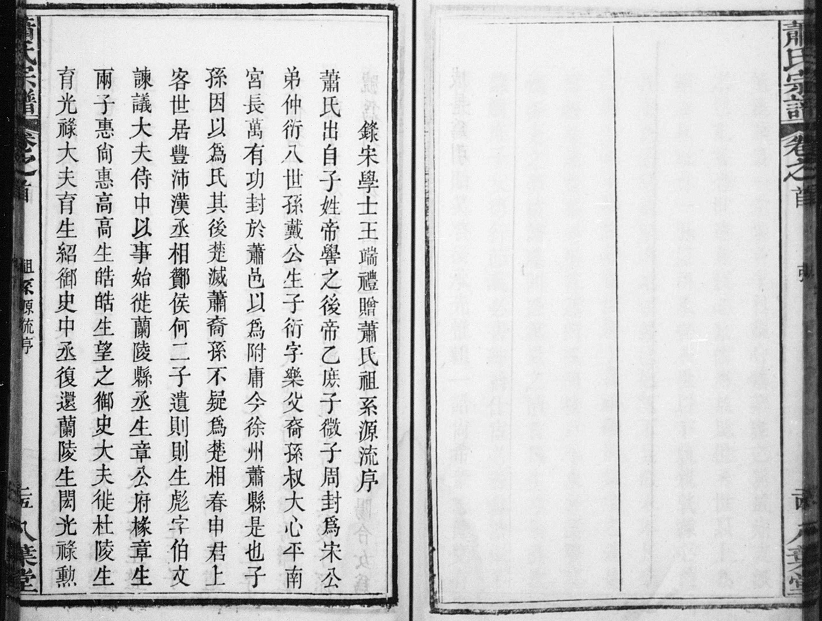 蕭氏宗譜
卷之首
八葉堂
錄宋學士王端禮贈蕭氏祖系源流序
蕭氏出自子姓帝嚳之後帝乙庶子微子周封爲宋公
弟仲衍八世孫戴公生子衍字樂父裔孫叔大心平南
宮長萬有功封於蕭邑以爲附庸今徐州蕭縣是也子
孫因以爲氏其後楚滅蕭裔孫不疑爲楚相春申君上
客世居豐沛漢丞相酇侯何二子遺則則生彪字伯文
諫議大夫侍中以事始徙蘭陵縣丞生章公府椽章生
兩子惠尙惠高高生皓皓生望之御史大夫徙杜陵生
育光祿大夫育生紹御史中丞復還蘭陵生閎光祿勲
蕭氏宗譜
卷之首
祖系源流序
八葉堂